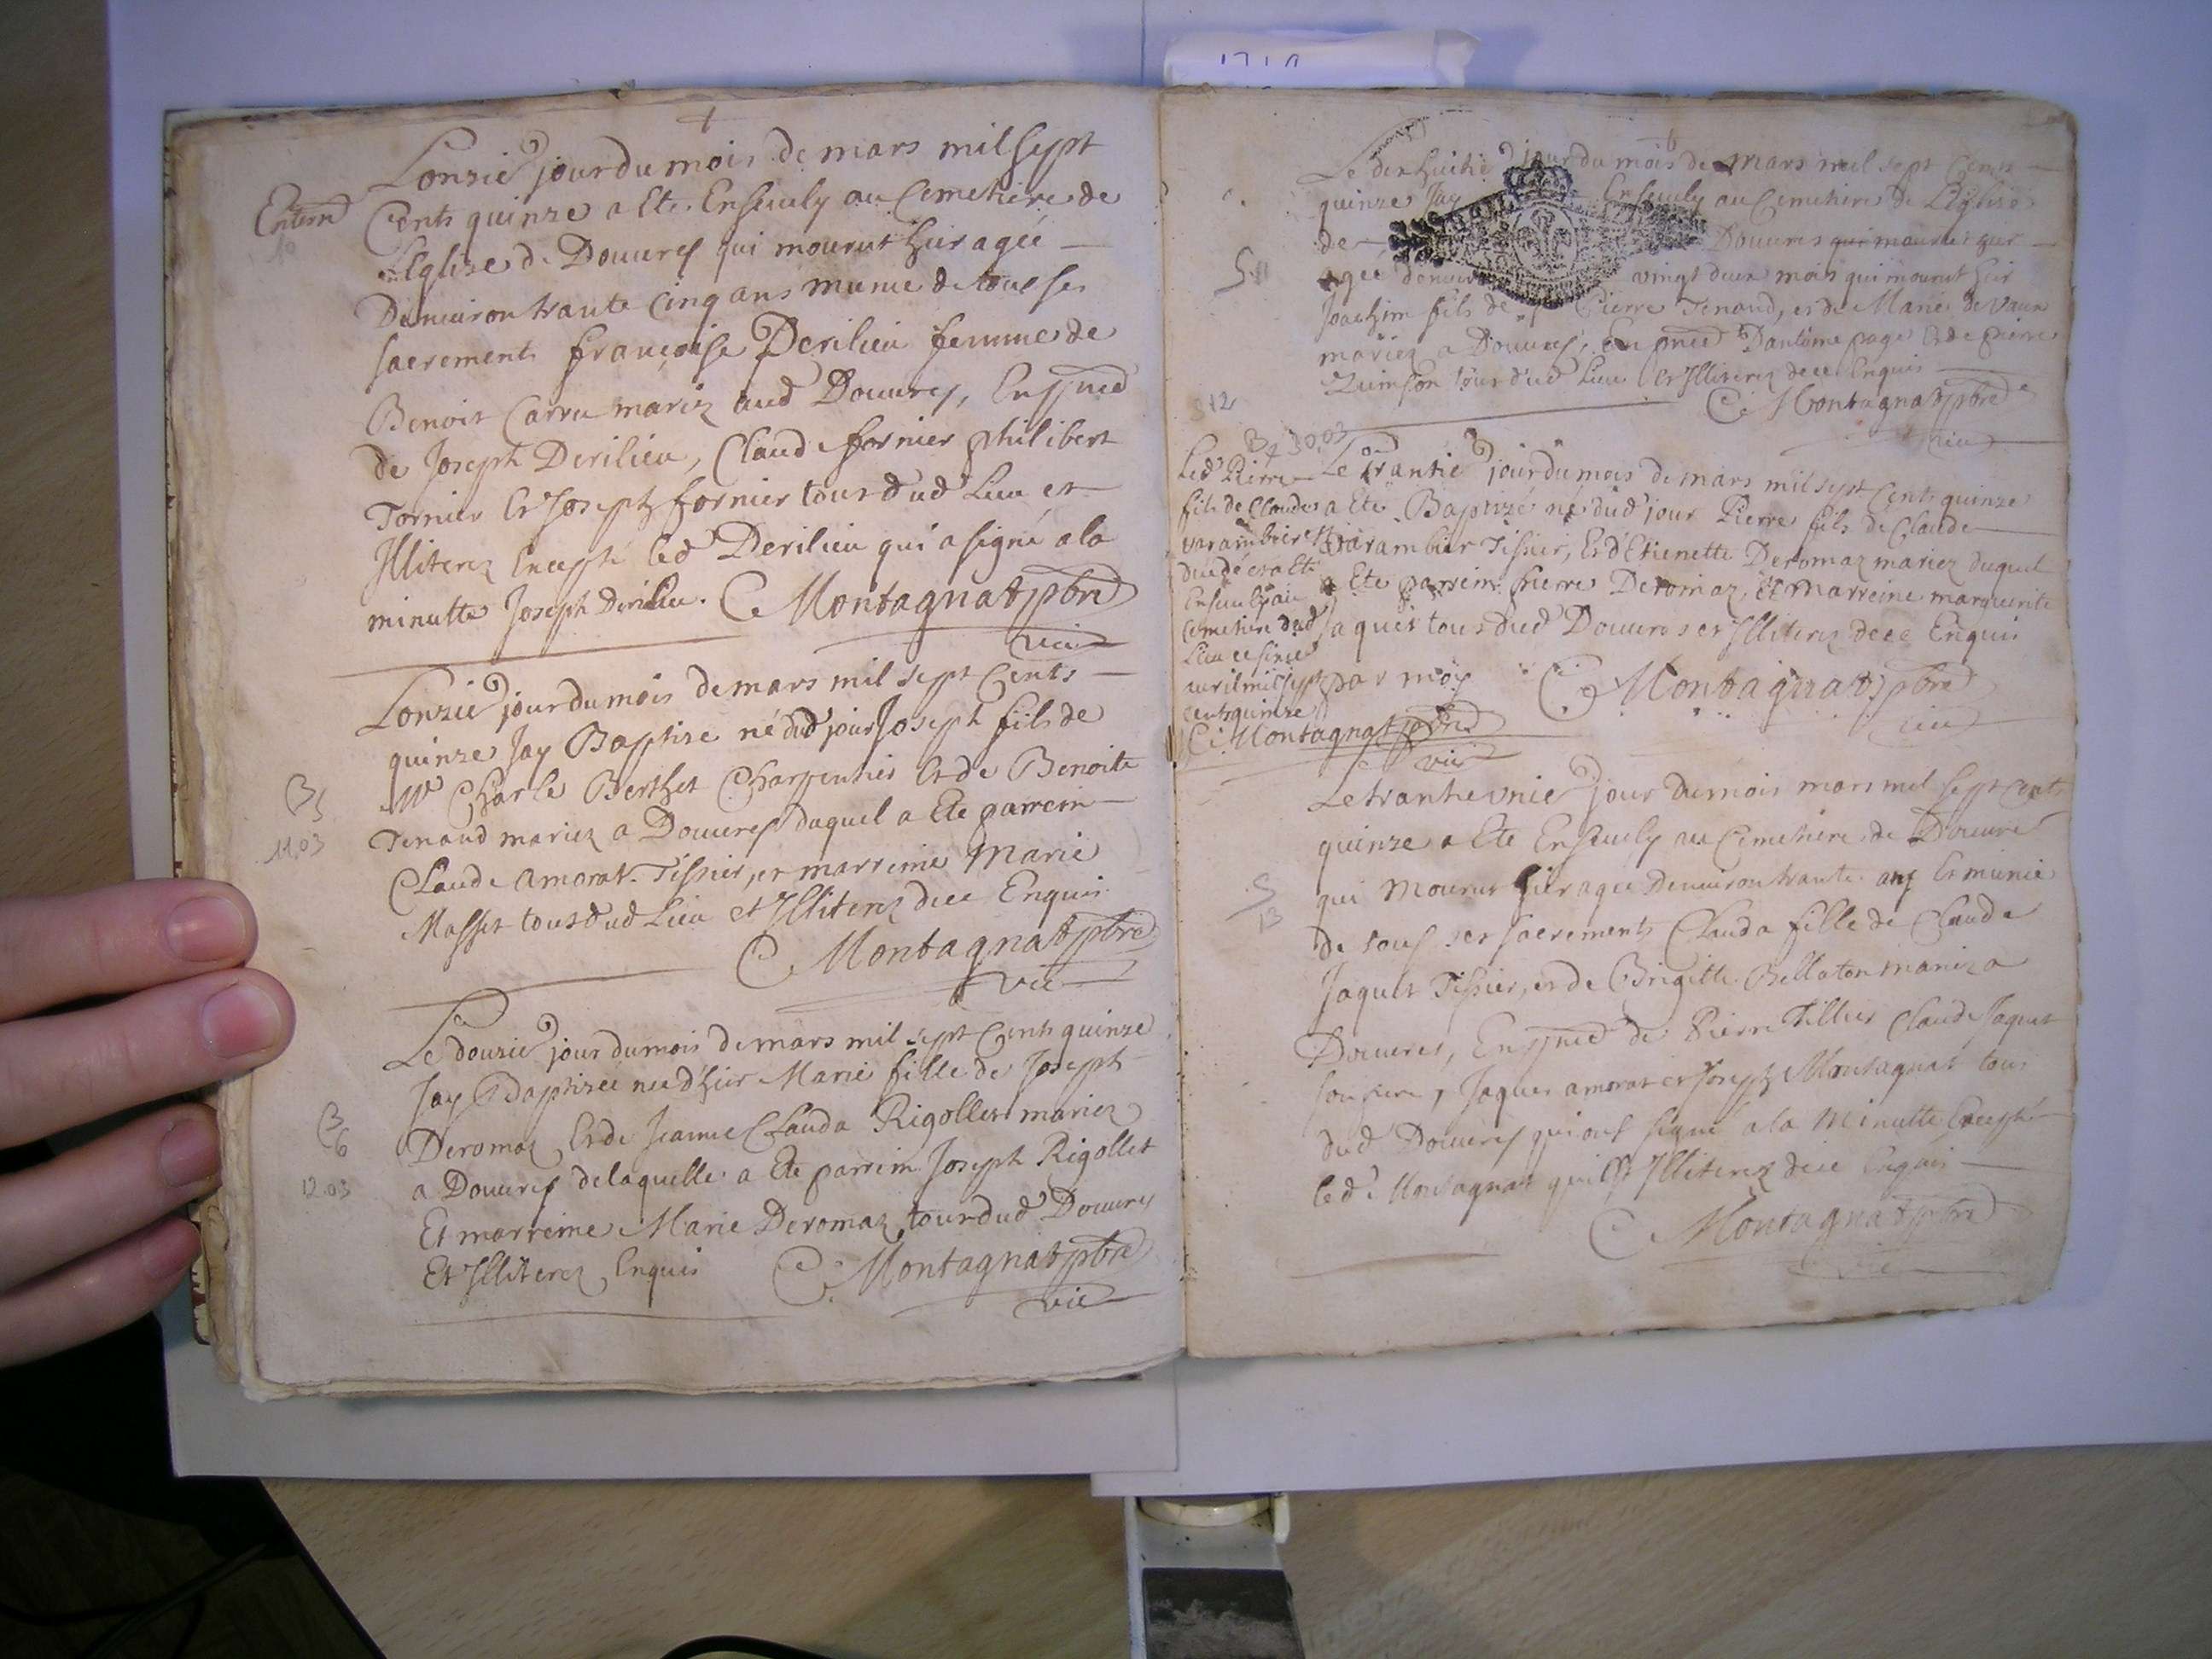 Lonzie jour du mois de mars mil sept
Enterrd
10
Cents quinze a Ete Enseuely au Cemetiere de
L'Eglize de Douures qui mourut hier agée
Denuiron trante cinq ans munie de tous ses
sacrements françoise Derilieu femme de
Benoit Carru mariez aud Douures, En pned
de Joseph Derilieu, Claude fornier philibert
Tornier Et Joseph fornier tous dud Lieu et
Illiterez Excepté led Derilieu qui a signé a la
minutte Joseph Derilieu. C Montagnat pbre
vic
Lonzie jour du mois de mars mil sept Cents
quinze Jay Baptize né dud jour Joseph fils de
B5
11.03
Me Charle Berthet Charpentier Et de Benoite
Tenand mariez a Douures duquel a Ete parrein
Claude Amorat Tissier, et marreine Marie
Masset tous dud Lieu et Illiterez dece Enquis
C Montagnat pbre
vic
Le douzie jour du mois de mars mil sept Cents quinze
Jay Baptizée née d'hier Marie fille de Joseph
B6
12.03
Deromaz Et de Jeanne Clauda Rigollet mariez
a Douures delaquelle a Ete parrein Joseph Rigollet
Et marreine Marie Deromaz tous dud Douures
Et Illiterez Enquis C. Montagnat pbre
vic
Le dix huitie jour du mois de mars mil sept Cents
quinze Jay Enseuely au Cemetiere de L'Eglize
de Douures qui mourut hier
S11
agée denuiron vingt deux mois qui mourut hier
Joachim fils de Pierre Tenand, et de Marie de vaux
mariez a Douures, En pned Dantoine page Et de pierre
Quinson tous dud Lieu Et Illiterez dece Enquis
S12
C Montagnat pbre
vic
B7 30.03
Led Pierre
fils de Claude
varambier Et
dud
Enseuely au
Cemetiere dud
Lieu
auril mil sept
cents quinze
C Montagnat pbre
vic
Le trantie jour du mois de mars mil sept Cents quinze
a Ete Baptizé né dud jour Pierre fils de Claude
Varambier Tissier, Et d'Etienette Deromaz mariez duquel
a Ete parrein Pierre Deromaz, Et marreine marguerite
Jaquet tous dud Douures et Illiterez dece Enquis
par moy C Montagnat pbre
vic
Le trantevnie jour du mois mars mil sept Cents
quinze a Ete Enseuely au Cemetiere de Douures
S
13
qui Mourut hier agée Denuiron trante ans Et munie
de tous ses sacrements Clauda fille de Claude
Jaquet Tissier, et de Brigitte Bellaton mariez a
Douures, En pned de Pierre Tillier Claude Jaquet
son frere, Jaques amorat et Joseph Montagnat tous
dud Douures qui ont signé a la Minutte Excepté
led Montagnat qui est Illiterez dece Enquis
C Montagnat pbre
vic